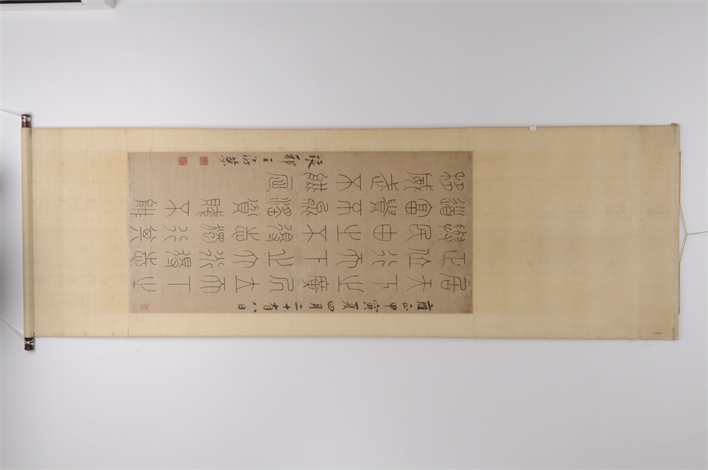 雍正甲寅夏四月二十有八日
居天下之廣居立天下之
正位行天下之大道得志
與民由之不得志獨行其
道富貴不能淫貧賤不能
移威武不能屈
琅邪王澍